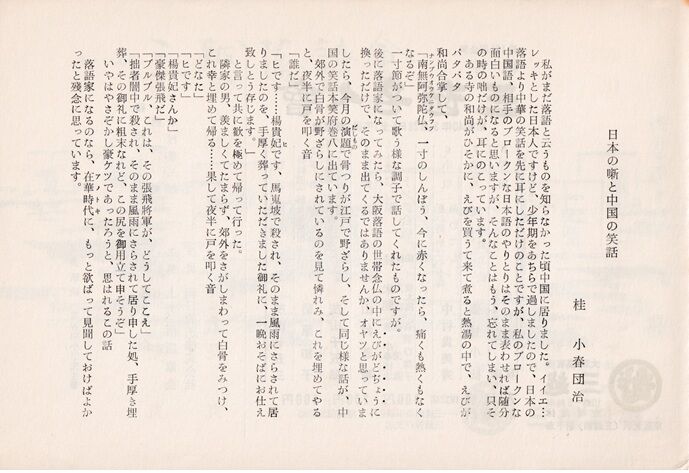 日本の噺と中国の笑話
桂　小春団治
私がまだ落語と云うものを知らなかった頃中国に居りました。イイエ…
レッキとした日本人ですけど、少年期をあちらで過しましたので、日本の
落語より中華の笑話を先に耳にしただけのことですが、私のブロークンな
中国語、相手のブロークンな日本語のやりとりはそのまま表わせれば随分
面白いものになると思いますが、そんなことはもう、忘れてしまい、只そ
の時の咄だけが、耳にのこっています。
ある寺の和尚がひそかに、えびを買うて来て煮ると熱湯の中で、えびが
バタバタ
和尚合掌して、
「南無阿弥陀仏、一寸のしんぼう、今に赤くなったら、痛くも熱くもなく
なるぞ」
一寸節がついて歌う様な調子で話してくれたものですが。
後に落語家になってみたら、大阪落語の世帯念仏の中にえびがどぢょうに
換っただけで、そのまま出てくるではありませんか、オヤッと思っていま
したら、今月の演題で骨つりが江戸で野ざらし、そして同じ様な話が、中
国の笑話本笑府巻八に出ています。
郊外で白骨が野ざらしにされているのを見て憐れみ、これを埋めてやる
と、夜半に戸を叩く音
「誰だ」
「ヒです……楊貴妃です、馬嵬坡で殺され、そのまま風雨にさらされて居
りましたのを、手厚く葬っていただきました御礼に、一晩おそばにお仕え
致しとう存じます」
と言って共に歓を極めて帰って行った。
隣家の男、羨ましくてたまらず、郊外をさがしまわって白骨をみつけ、
これ幸と埋めて帰る……果して夜半に戸を叩く音
「どなた」
「ヒです」
「楊貴妃さんか」
「豪傑張飛だ」
「ブルブル、これは、その張飛将軍が、どうしてここえ」
「拙者閬中で殺され、そのまま風雨にさらされて居り申した処、手厚き埋
葬、その御礼に粗末なれど、この尻を御用立て申そうぞ」
いやはやさぞかし豪ケツであったろうと、思はれるこの話
落語家になるのなら、在華時代に、もっと欲ばって見聞しておけばよか
ったと残念に思っています。